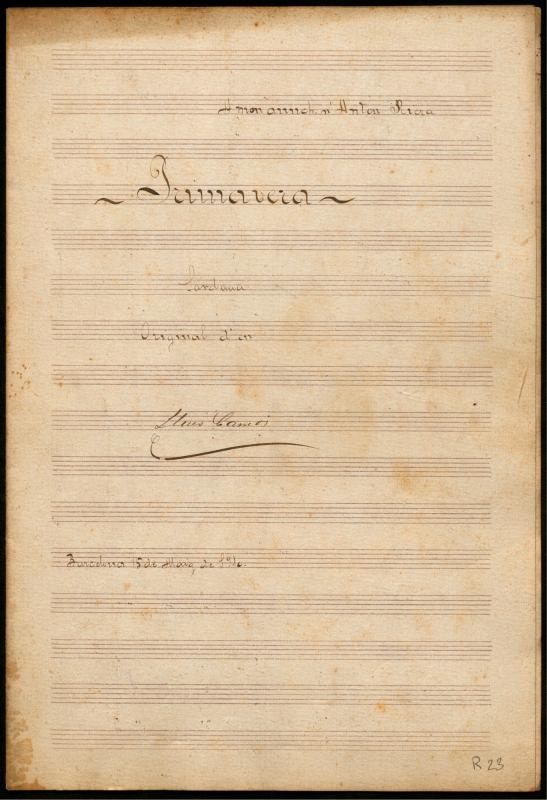 A mon amich n' Anton Riera
~ Primavera ~
Sardana
Original d'en
Lluís Camós
Barcelona 15 de Maig de
R 23